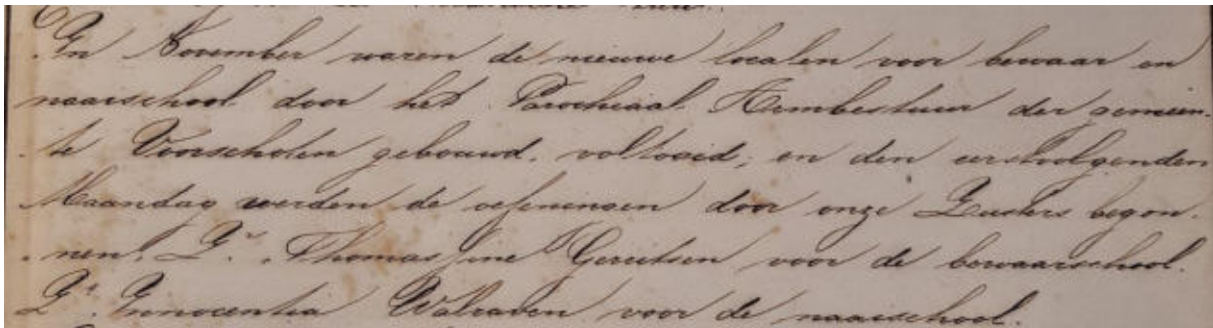 In November waren de nieuwe localen voor bewaar en
naaischool door het Parochiaal Armbestuur der gemeen-
te Voorschoten gebouwd, voltooid; en den eerstvolgenden
Maandag werden de oefeningen door onze Zusters begon-
nen. Zr. Thomassine Gerritsen voor de bewaarschool.
Zr. Innocentia Walraven voor de naaischool.